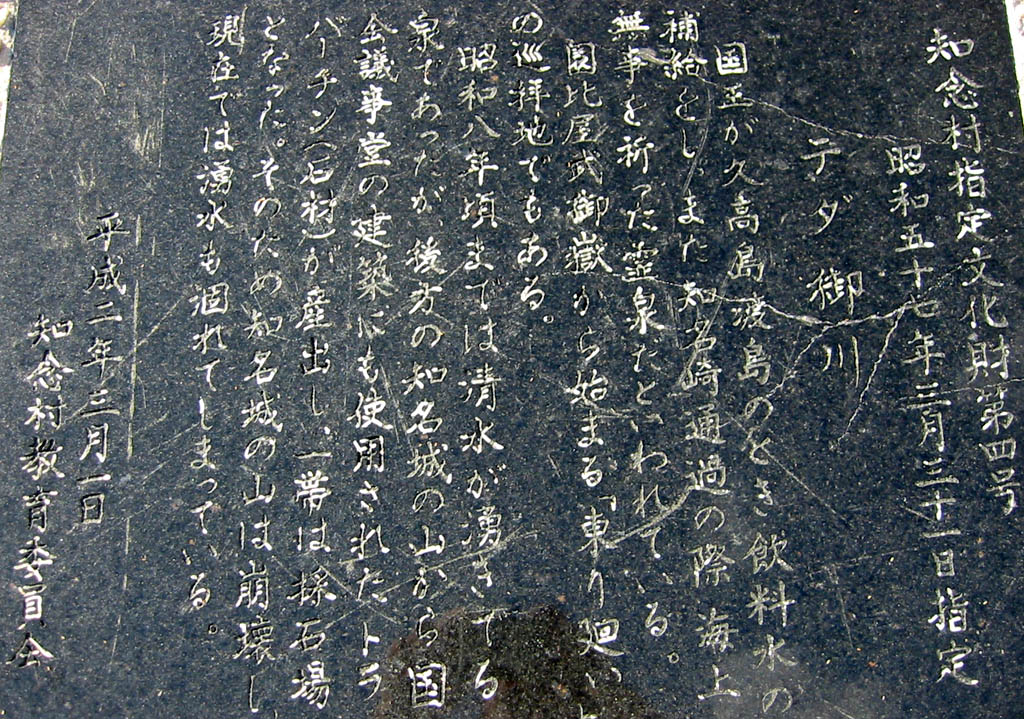 知念村指定文化財第四号
昭和五十七年三月三十一日指定
テダ御川
国王が久高島渡島のとき飲料水の
補給をし、また知名崎通過の際海上
無事を祈った霊泉だといわれている。
園比屋武御嶽から始まる「東り廻い」
の巡拝地でもある。
昭和八年頃までは清水が湧きでる
泉であったが、後方の知名城の山から国
会議事堂の建築にも使用されたトラ
バーチン（石材）が産出し、一帯は採石場
となった。そのため知名城の山は崩壊し、
現在では湧水も涸れてしまっている。
平成二年三月一日
知念村教育委員会